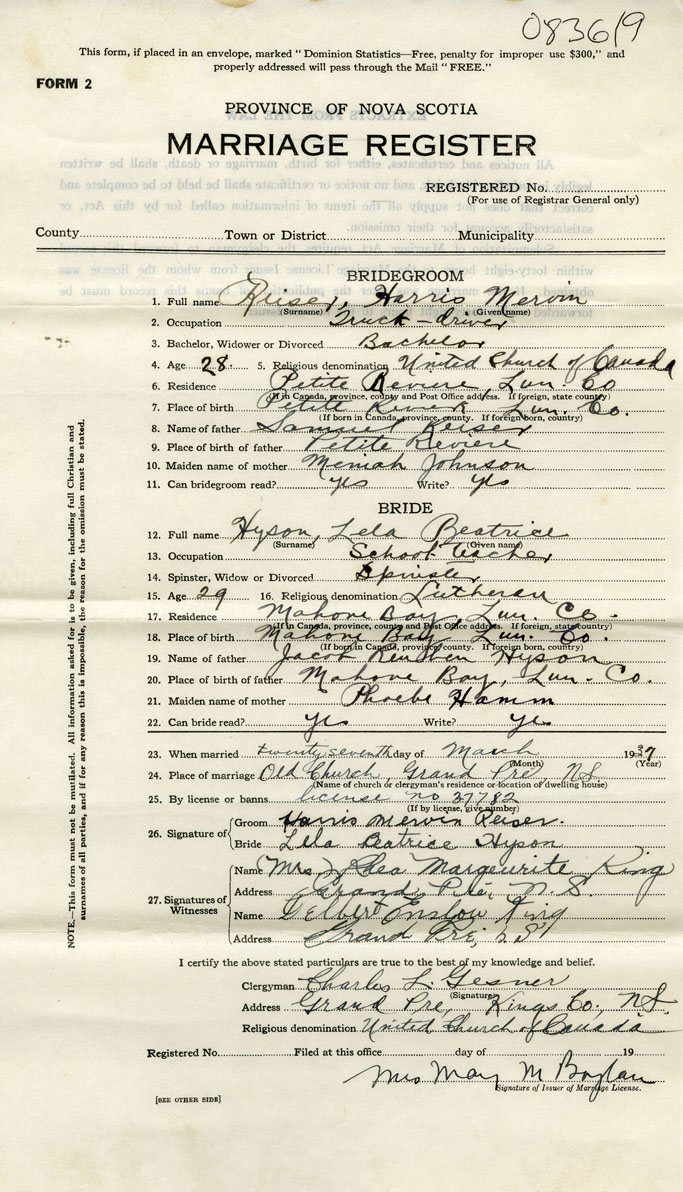 083619
This form, if placed in an envelope, marked "Dominion Statistics—Free, penalty for improper use $300," and
properly addressed will pass through the Mail "FREE."
FORM 2
PROVINCE OF NOVA SCOTIA
MARRIAGE REGISTER
REGISTERED No.
(For use of Registrar General only)
County Town or District Municipality
BRIDEGROOM
1. Full name Reiser, Harris Mervin
(Surname) (Given name)
2. Occupation Truck-driver
3. Bachelor, Widower or Divorced Bachelor
4. Age 28. 5. Religious denomination United Church of Canada
6. Residence Petite Reviere, Lun. Co
(If in Canada, province, county and Post Office address. If foreign, state country)
7. Place of birth Petite River Lun. Co.
(If born in Canada, province, county. If foreign born, country)
8. Name of father Samuel Reiser
9. Place of birth of father Petite Reviere
10. Maiden name of mother Johnson
11. Can bridegroom read? yes Write? yes
BRIDE
12. Full name Hyson, Lela Beatrice
(Surname) (Given name)
13. Occupation School teacher
14. Spinster, Widow or Divorced Spinster
15. Age 29 16. Religious denomination Lutheran
17. Residence Mahone Bay, Lun. Co.
(If in Canada, province, county and Post Office address. If foreign, state country)
18. Place of birth Mahone Bay Lun. Co.
(If born in Canada, province, county. If foreign born, country)
19. Name of father Jacob Reuben Hyson
20. Place of birth of father Mahone Bay, Lun. Co.
21. Maiden name of mother Phoebe Hamm
22. Can bride read? Yes Write? Yes
23. When married twenty seventh day of March 1937
(Month) (Year)
24. Place of marriage Old Church, Grand Pré, N.S.
(Name of church or clergyman's residence or location of dwelling house)
25. By license or banns license no 37782
(If by license, give number)
26. Signature of Groom Harris Mervin Reiser.
Bride Lela Beatrice Hyson
27. Signatures of Witnesses
Name Mrs Rhea Marguerite King
Address Grand Pré, N.S.
Name Delbert Enslow King
Address Grand Pré, N.S.
I certify the above stated particulars are true to the best of my knowledge and belief.
Clergyman Charles L. Gesner
(Signature)
Address Grand Pre, Kings Co., N.S.
Religious denomination United Church of Canada
Registered No. Filed at this office day of 19
Mrs May M Boylan
Signature of Issuer of Marriage License.
[SEE OTHER SIDE]
NOTE.—This form must not be mutilated. All information asked for is to be given, including full Christian and
surnames of all parties, and if for any reason this is impossible, the reason for the omission must be stated.